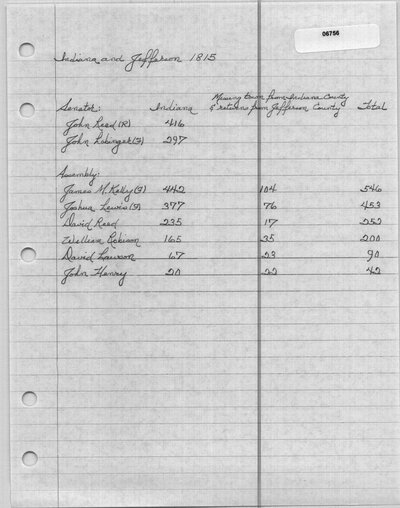 06756
Indiana and Jefferson 1815
Missing town from Indiana County
Senator: Indiana & returns from Jefferson County Total
John Reed (R) 416
John Lobingier (F) 297
Assembly:
James M. Kelly (F) 442 104 546
Joshua Lewis (F) 377 76 453
David Reed 235 17 252
William Robison 165 35 200
David Lawson 67 23 90
John Henry 20 22 42